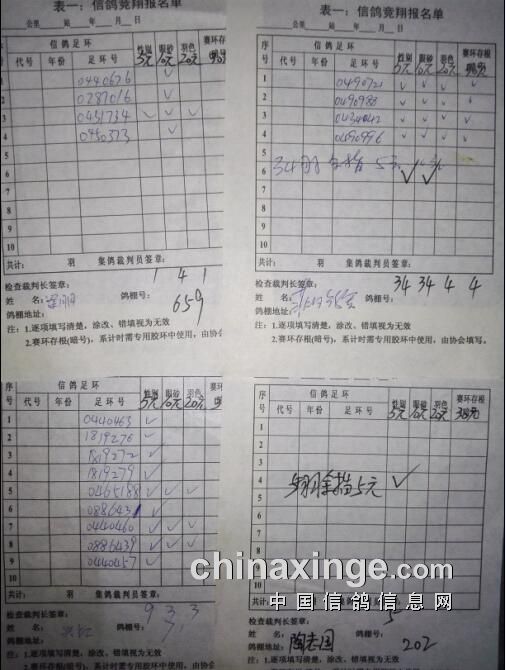 表一：信鸽竞翔报名单
公里 站 年 月 日
序号 信鸽足环 性别 眼砂 羽色 赛环存根
代号 年份 足环号 5元 10元 20元
1 0440676 ✓
2 0287016 ✓
3 0451734 ✓ ✓ ✓
4 0450373 ✓
5
6
7
8
9
10
共计： 羽 集鸽裁判员签章：
检查裁判长签章： 1 4 1
姓 名： 鸽棚号：
鸽棚地址： 659
注：1.逐项填写清楚，涂改、错填视为无效
2.赛环存根(暗号)，系计时需专用胶环中使用，由协
表一：信鸽竞翔报名单
公里 站 年 月 日
序号 信鸽足环 性别 眼砂 羽色 赛环存根
代号 年份 足环号 5元 10元 20元
1 0490721 ✓ ✓ ✓ ✓
2 0490983 ✓ ✓ ✓ ✓
3 0434042 ✓ ✓ ✓ ✓
4 0490996 ✓ ✓ ✓ ✓
5
6 34羽 5元 ✓ ✓
7
8
9
10
共计： 羽 集鸽裁判员签章：
检查裁判长签章： 34 34 4 4
姓 名： 鸽棚号：
鸽棚地址：
注：1.逐项填写清楚，涂改、错填视为无效
2.赛环存根(暗号)，系计时需专用胶环中使用，由协会填写。
序号 信鸽足环 性别 眼砂 羽色 赛环存根
代号 年份 足环号 5元 10元 20元
1 0440463 ✓
2 1819276 ✓
3 1819272 ✓
4 1819279 ✓
5 0465188 ✓ ✓ ✓
6 088643
7 0440460 ✓ ✓ ✓
8 0886439 ✓ ✓ ✓
9 0440457 ✓
10
共计： 羽 集鸽裁判员签章：
检查裁判长签章： 9 3 3
姓 名： 鸽棚号：
鸽棚地址：
注：1.逐项填写清楚，涂改、错填视为无效
2.赛环存根(暗号)，系计时需专用胶环中使用，由协
序号 信鸽足环 性别 眼砂 羽色 赛环存根
代号 年份 足环号 5元 10元 20元
1
2
3
4 5元 ✓
5
6
7
8
9
10
共计
检查裁判长签章： 5
姓 名： 陶志国 鸽棚号：
鸽棚地址： 202
注：1.逐项填写清楚，涂改、错填视为无效
2.赛环存根(暗号)，系计时需专用胶环中使用，由协会填写。
chinaxinge.com
中国信鸽信息网